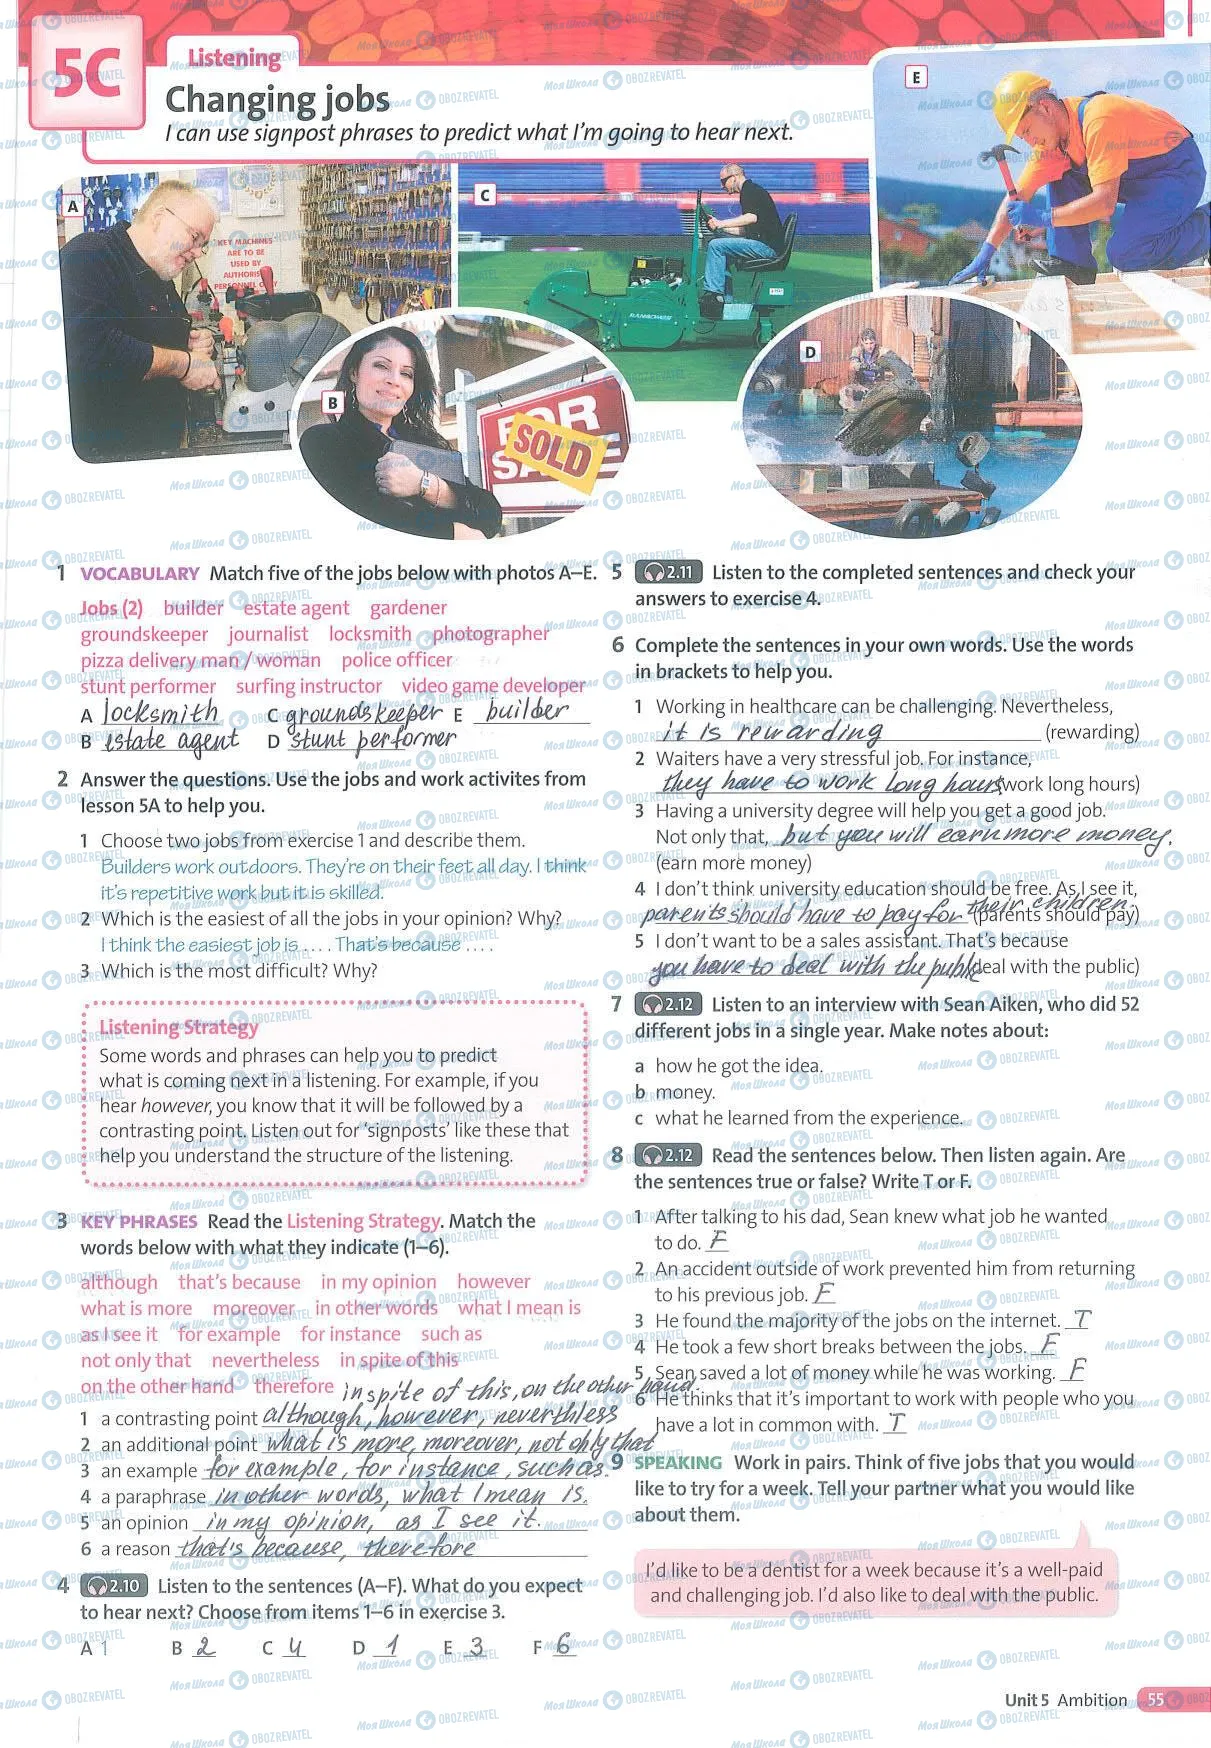 5C
Listening
Changing jobs
I can use signpost phrases to predict what I'm going to hear next.
A
KEY MACHINES
ARE TO BE
USED BY
AUTHORIS
PERSONNEL O Y
B
FOR
SALE
SOLD
C
RANSOMES
D
E
1 VOCABULARY Match five of the jobs below with photos A–E.
Jobs (2) builder estate agent gardener
groundskeeper journalist locksmith photographer
pizza delivery man / woman police officer
stunt performer surfing instructor video game developer
A locksmith C groundskeeper E builder
B estate agent D stunt performer
2 Answer the questions. Use the jobs and work activites from
lesson 5A to help you.
1 Choose two jobs from exercise 1 and describe them.
Builders work outdoors. They're on their feet all day. I think
it's repetitive work but it is skilled.
2 Which is the easiest of all the jobs in your opinion? Why?
I think the easiest job is .... That's because ....
3 Which is the most difficult? Why?
Listening Strategy
Some words and phrases can help you to predict
what is coming next in a listening. For example, if you
hear however, you know that it will be followed by a
contrasting point. Listen out for 'signposts' like these that
help you understand the structure of the listening.
3 KEY PHRASES Read the Listening Strategy. Match the
words below with what they indicate (1–6).
although that's because in my opinion however
what is more moreover in other words what I mean is
as I see it for example for instance such as
not only that nevertheless in spite of this
on the other hand therefore in spite of this, on the other hand.
1 a contrasting point although, however, neverthless
2 an additional point what is more, moreover, not only that
3 an example for example, for instance, such as.
4 a paraphrase in other words, what I mean is.
5 an opinion in my opinion, as I see it.
6 a reason that's because, therefore
4 2.10 Listen to the sentences (A–F). What do you expect
to hear next? Choose from items 1–6 in exercise 3.
A 1 B 2 C 4 D 1 E 3 F 6
5 2.11 Listen to the completed sentences and check your
answers to exercise 4.
6 Complete the sentences in your own words. Use the words
in brackets to help you.
1 Working in healthcare can be challenging. Nevertheless,
it is rewarding (rewarding)
2 Waiters have a very stressful job. For instance,
they have to work long hours (work long hours)
3 Having a university degree will help you get a good job.
Not only that, but you will earn more money.
(earn more money)
4 I don't think university education should be free. As I see it,
parents should have to pay for their children. (parents should pay)
5 I don't want to be a sales assistant. That's because
you have to deal with the public (deal with the public)
7 2.12 Listen to an interview with Sean Aiken, who did 52
different jobs in a single year. Make notes about:
a how he got the idea.
b money.
c what he learned from the experience.
8 2.12 Read the sentences below. Then listen again. Are
the sentences true or false? Write T or F.
1 After talking to his dad, Sean knew what job he wanted
to do. F
2 An accident outside of work prevented him from returning
to his previous job. F
3 He found the majority of the jobs on the internet. T
4 He took a few short breaks between the jobs. F
5 Sean saved a lot of money while he was working. F
6 He thinks that it's important to work with people who you
have a lot in common with. T
9 SPEAKING Work in pairs. Think of five jobs that you would
like to try for a week. Tell your partner what you would like
about them.
I'd like to be a dentist for a week because it's a well-paid
and challenging job. I'd also like to deal with the public.
Unit 5 Ambition 55
Моя Школа OBOZREVATEL